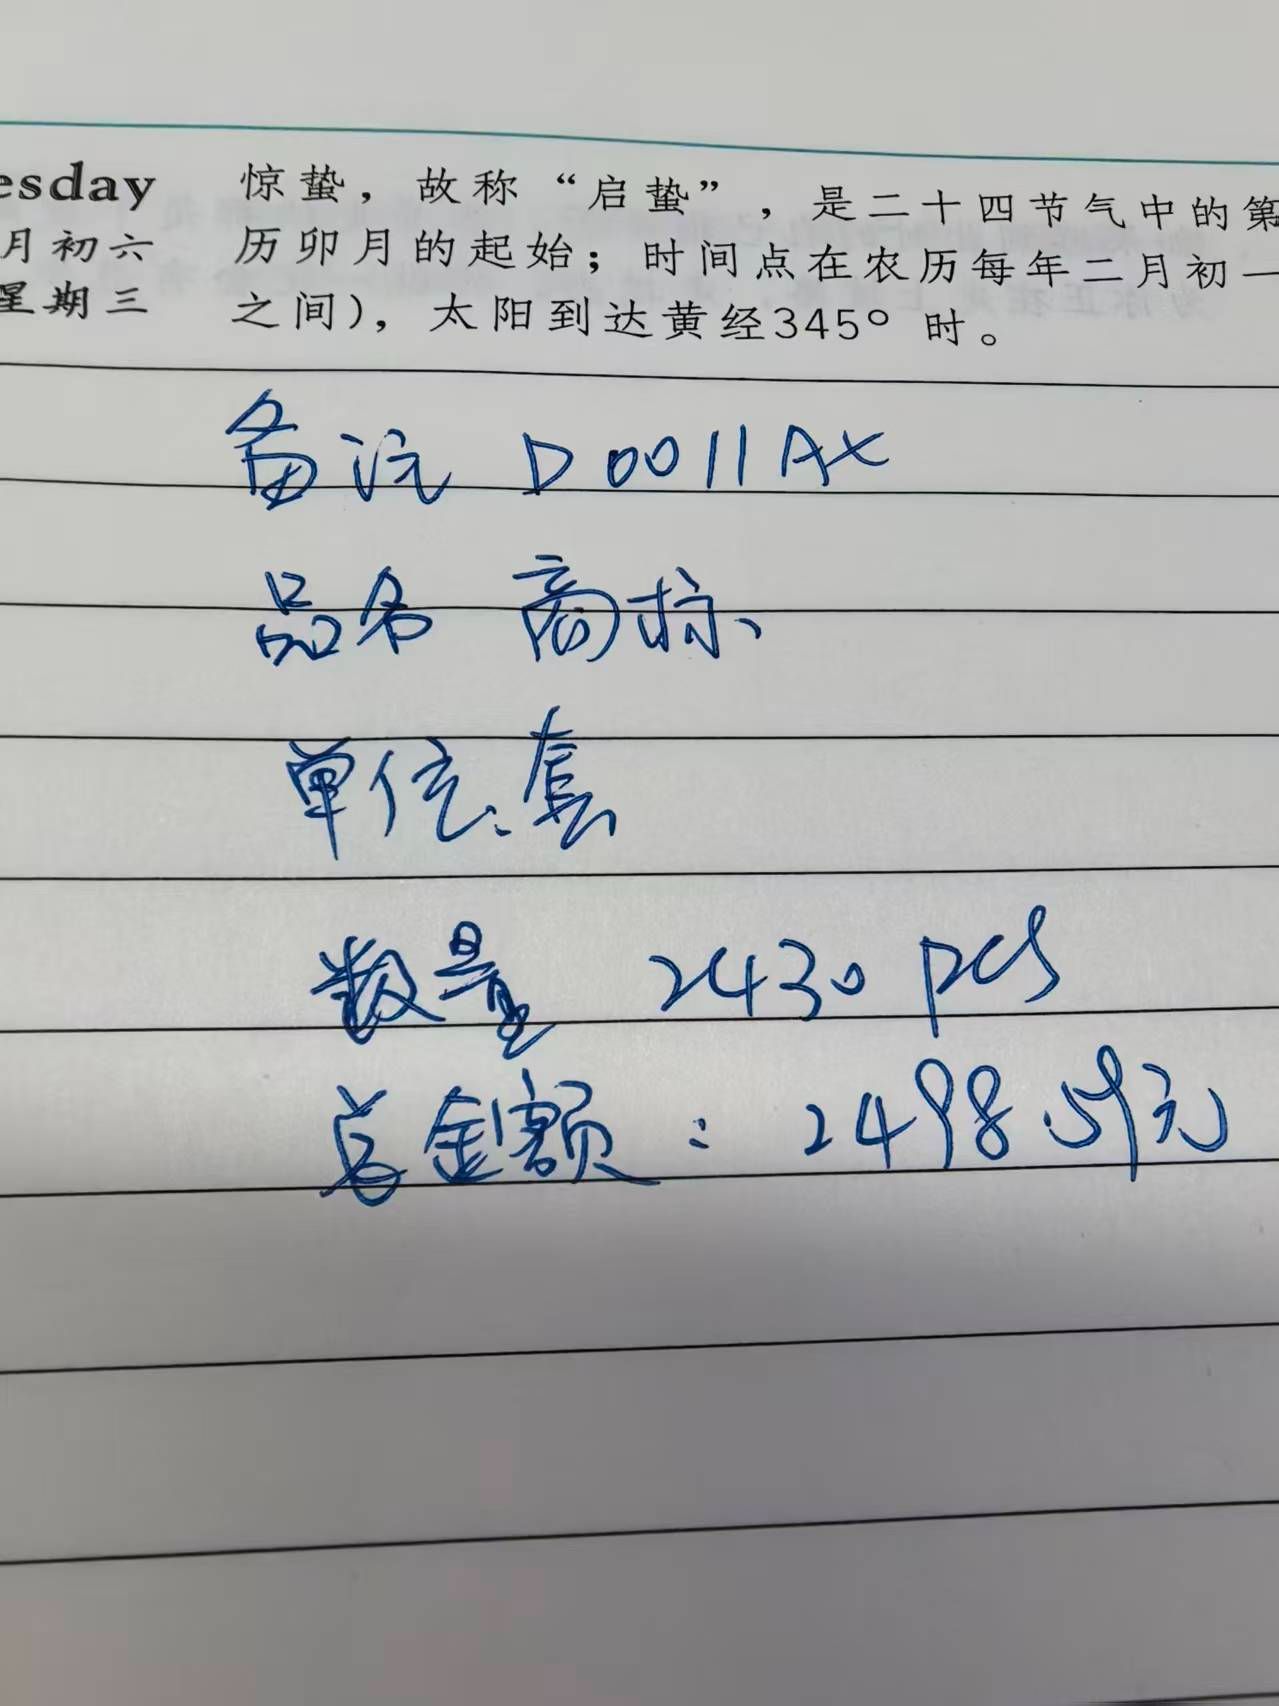 esday
月初六
星期三
惊蛰，故称“启蛰”，是二十四节气中的第
历卯月的起始；时间点在农历每年二月初一
之间），太阳到达黄经345° 时。
备注 D0011AX
品名 商标、
单位：套
数量 2430 pcs
总金额：2498.59元